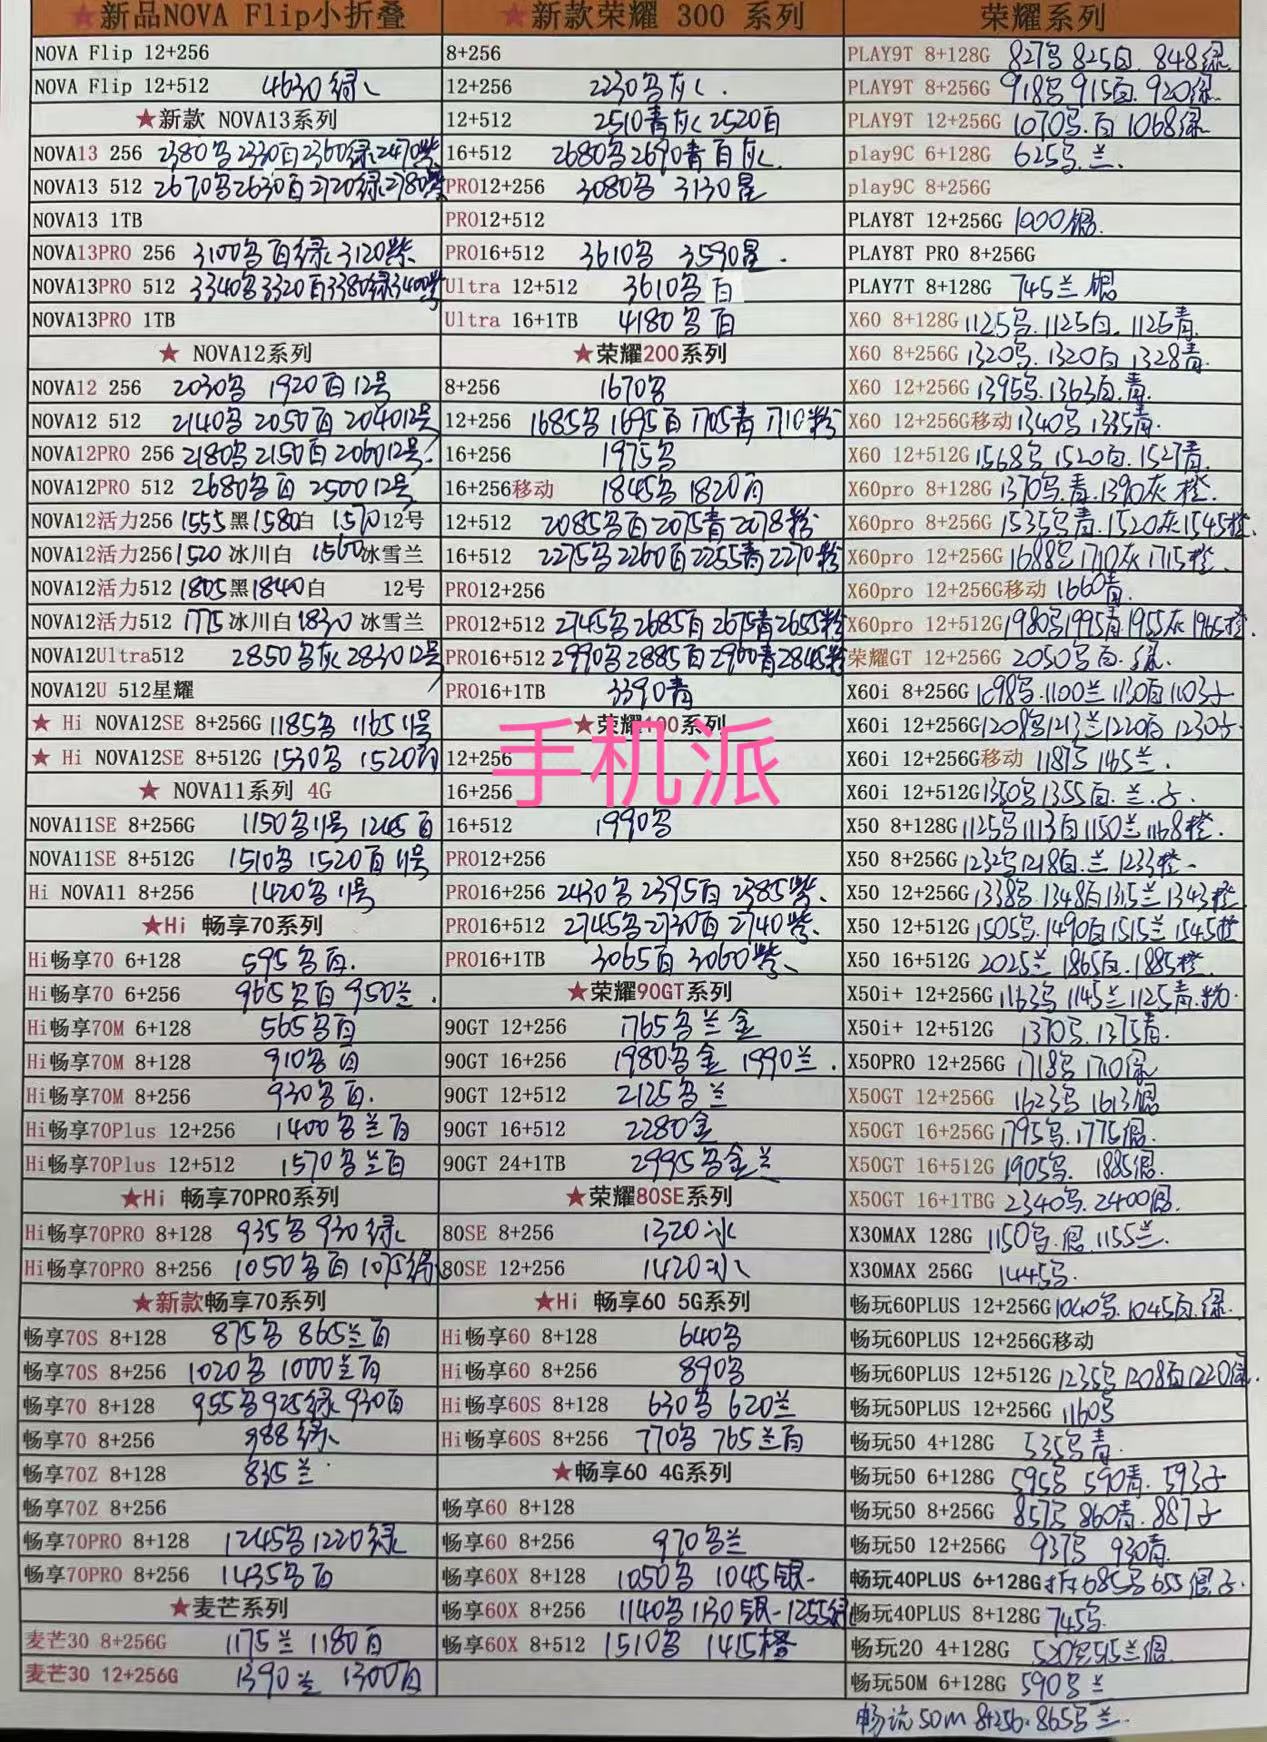 ★新品NOVA Flip小折叠
NOVA Flip 12+256
NOVA Flip 12+512 4630绿
★新款 NOVA13系列
NOVA13 256 2380黑2330白2360绿2470紫
NOVA13 512 2670黑2630白2720绿2780紫
NOVA13 1TB
NOVA13PRO 256 3100黑白绿3120紫
NOVA13PRO 512 3340黑3320白3380绿3400紫
NOVA13PRO 1TB
★ NOVA12系列
NOVA12 256 2030黑 1920白12号
NOVA12 512 2140黑 2050白 204012号
NOVA12PRO 256 2180黑2150白206012号
NOVA12PRO 512 2680黑白 250012号
NOVA12活力256 1555黑1580白 157012号
NOVA12活力256 1520 冰川白 1560冰雪兰
NOVA12活力512 1805黑1840白 12号
NOVA12活力512 1775冰川白1830 冰雪兰
NOVA12Ultra512 2850黑灰283012号
NOVA12U 512星耀
★ Hi NOVA12SE 8+256G 1185黑 116511号
★ Hi NOVA12SE 8+512G 1530黑 1520白
★ NOVA11系列 4G
NOVA11SE 8+256G 1150黑11号 1245白
NOVA11SE 8+512G 1510黑 1520白11号
Hi NOVA11 8+256 1420黑11号
★Hi 畅享70系列
Hi畅享70 6+128 595黑白.
Hi畅享70 6+256 965黑白 950兰.
Hi畅享70M 6+128 565黑白
Hi畅享70M 8+128 910黑白
Hi畅享70M 8+256 930黑白.
Hi畅享70Plus 12+256 1400黑兰白
Hi畅享70Plus 12+512 1570黑兰白
★Hi 畅享70PRO系列
Hi畅享70PRO 8+128 935黑 930绿
Hi畅享70PRO 8+256 1050黑白 1075绿
★新款畅享70系列
畅享70S 8+128 875黑 865兰白
畅享70S 8+256 1020黑 1000兰白
畅享70 8+128 955黑925绿930白
畅享70 8+256 988绿
畅享70Z 8+128 835兰
畅享70Z 8+256
畅享70PRO 8+128 1245黑1220绿
畅享70PRO 8+256 1435黑白
★麦芒系列
麦芒30 8+256G 1175兰 1180白
麦芒30 12+256G 1390兰 1300白
★新款荣耀 300 系列
8+256
12+256 2230黑灰.
12+512 2510青灰2520白
16+512 2680黑2690青白灰
PRO12+256 3080黑 3130星
PRO12+512
PRO16+512 3610黑 3590星.
Ultra 12+512 3610黑白
Ultra 16+1TB 4180黑白
★荣耀200系列
8+256 1670黑
12+256 1685黑1695白1705青1710粉
16+256 1975黑
16+256移动 1845黑1820白
12+512 2085黑白2075青2078粉
16+512 2275黑2260白2255青2270粉
PRO12+256
PRO12+512 2745黑2685白2675青2655粉
PRO16+512 2990黑2885白2900青2845粉
PRO16+1TB 3390青
★荣耀100系列
手机派
12+256
16+256
16+512 1990黑
PRO12+256
PRO16+256 2430黑2395白2385紫.
PRO16+512 2745黑2730白2740紫.
PRO16+1TB 3065白3060紫
★荣耀90GT系列
90GT 12+256 1765黑兰金
90GT 16+256 1980黑金 1990兰.
90GT 12+512 2125黑兰
90GT 16+512 2280金
90GT 24+1TB 2995黑金兰
★荣耀80SE系列
80SE 8+256 1320冰
80SE 12+256 1420冰
★Hi 畅享60 5G系列
Hi畅享60 8+128 640黑
Hi畅享60 8+256 890黑
Hi畅享60S 8+128 630黑620兰
Hi畅享60S 8+256 770黑765兰白
★畅享60 4G系列
畅享60 8+128
畅享60 8+256 970黑兰
畅享60X 8+128 1050黑 1045银
畅享60X 8+256 1140黑1130银1255绿
畅享60X 8+512 1510黑 1415橙
荣耀系列
PLAY9T 8+128G 827黑825白.848绿
PLAY9T 8+256G 918黑915白.920绿
PLAY9T 12+256G 1070黑.白1068绿
play9C 6+128G 625黑.兰.
play9C 8+256G
PLAY8T 12+256G 1000银.
PLAY8T PRO 8+256G
PLAY7T 8+128G 745兰银
X60 8+128G 1125黑.1125白.1125青.
X60 8+256G 1320黑.1320白1328青.
X60 12+256G 1395黑.1363白.青.
X60 12+256G移动1340黑1335青.
X60 12+512G 1568黑1520白.1527青.
X60pro 8+128G 1370黑.青.1390灰橙.
X60pro 8+256G 1535黑青.1520灰1545橙.
X60pro 12+256G 1688黑1710灰1715橙.
X60pro 12+256G移动 1660青.
X60pro 12+512G 1980黑1995青1955灰1965橙.
荣耀GT 12+256G 2050黑白.绿.
X60i 8+256G 1098黑.1100兰1130白1103子
X60i 12+256G1209黑1213兰1220白1230子.
X60i 12+256G移动 1187黑1165兰.
X60i 12+512G1350黑1355白.兰.子.
X50 8+128G1125黑1113白1150兰1168橙.
X50 8+256G 1232黑1218白.兰1233橙
X50 12+256G 1338黑.1348白1315兰1343橙.
X50 12+512G 1505黑.1490白1515兰1545橙
X50 16+512G 2025兰1865白.1885橙.
X50i+ 12+256G 1163黑1145兰1125青.粉.
X50i+ 12+512G 1370黑.1375青.
X50PRO 12+256G 1718黑1710绿
X50GT 12+256G 1623黑1613银
X50GT 16+256G 1795黑.1775银.
X50GT 16+512G 1905黑. 1885银.
X50GT 16+1TBG 2340黑.2400银.
X30MAX 128G 1150黑.银.1155兰.
X30MAX 256G 1445黑.
畅玩60PLUS 12+256G1040黑.1045白.绿.
畅玩60PLUS 12+256G移动
畅玩60PLUS 12+512G 1235黑1208白1220绿.
畅玩50PLUS 12+256G 1160黑
畅玩50 4+128G 535黑青.
畅玩50 6+128G 595黑 590青.593子
畅玩50 8+256G 857黑860青.887子
畅玩50 12+256G 937黑 930青.
畅玩40PLUS 6+128G 685黑655银子.
畅玩40PLUS 8+128G 745黑.
畅玩20 4+128G 520黑515兰银.
畅玩50M 6+128G 590黑兰
畅玩50M 8+256.865黑兰.